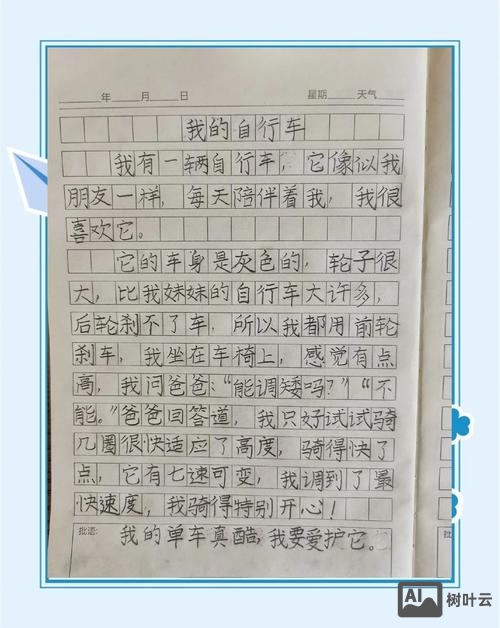 年 月 日 星期 天气
我的自行车
我有一辆自行车，它像似我
朋友一样，每天陪伴着我，我很
喜欢它。
它的车身是灰色的，轮子很
大，比我妹妹的自行车大许多，
后轮刹不了车，所以我都用前轮
刹车，我坐在车椅上，感觉有点
高，我问爸爸：“能调矮吗？”“不
能。”爸爸回答道，我只好试试骑
几圈很快适应了高度，骑得快了
点，它有七速可变，我调到了最
快速度，我骑得特别开心！
批语：
我的单车真酷，我要爱护它。
批
AI 树叶云